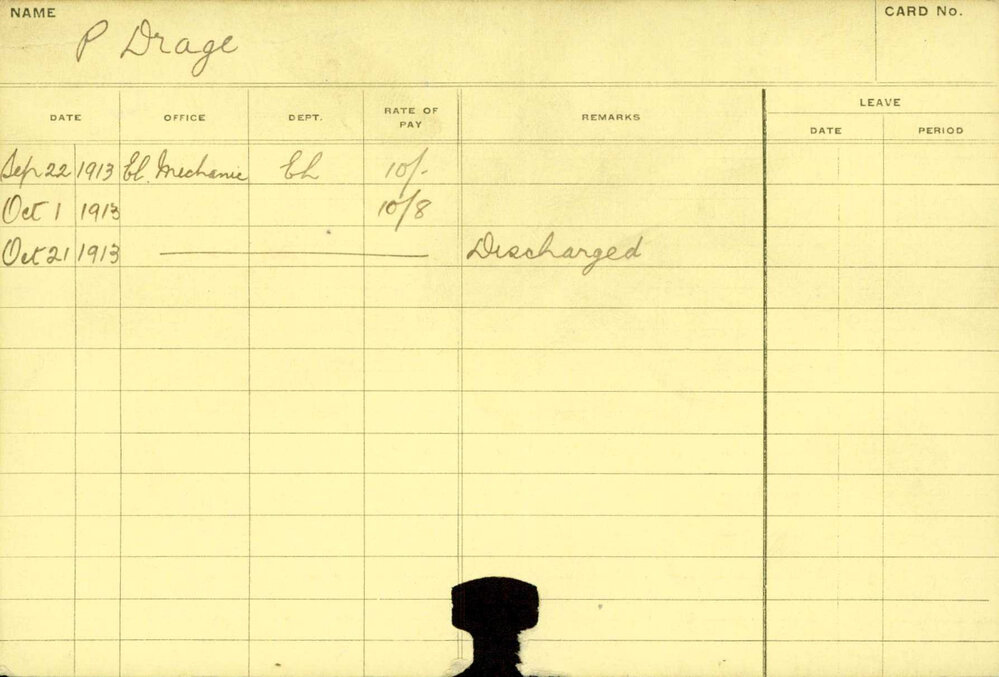 NAME
CARD No.
P Drage
DATE OFFICE DEPT. RATE OF PAY REMARKS LEAVE
DATE PERIOD
Sep 22 1913 El. Mechanic EL 10/-
Oct 1 1913 10/8
Oct 21 1913 Discharged